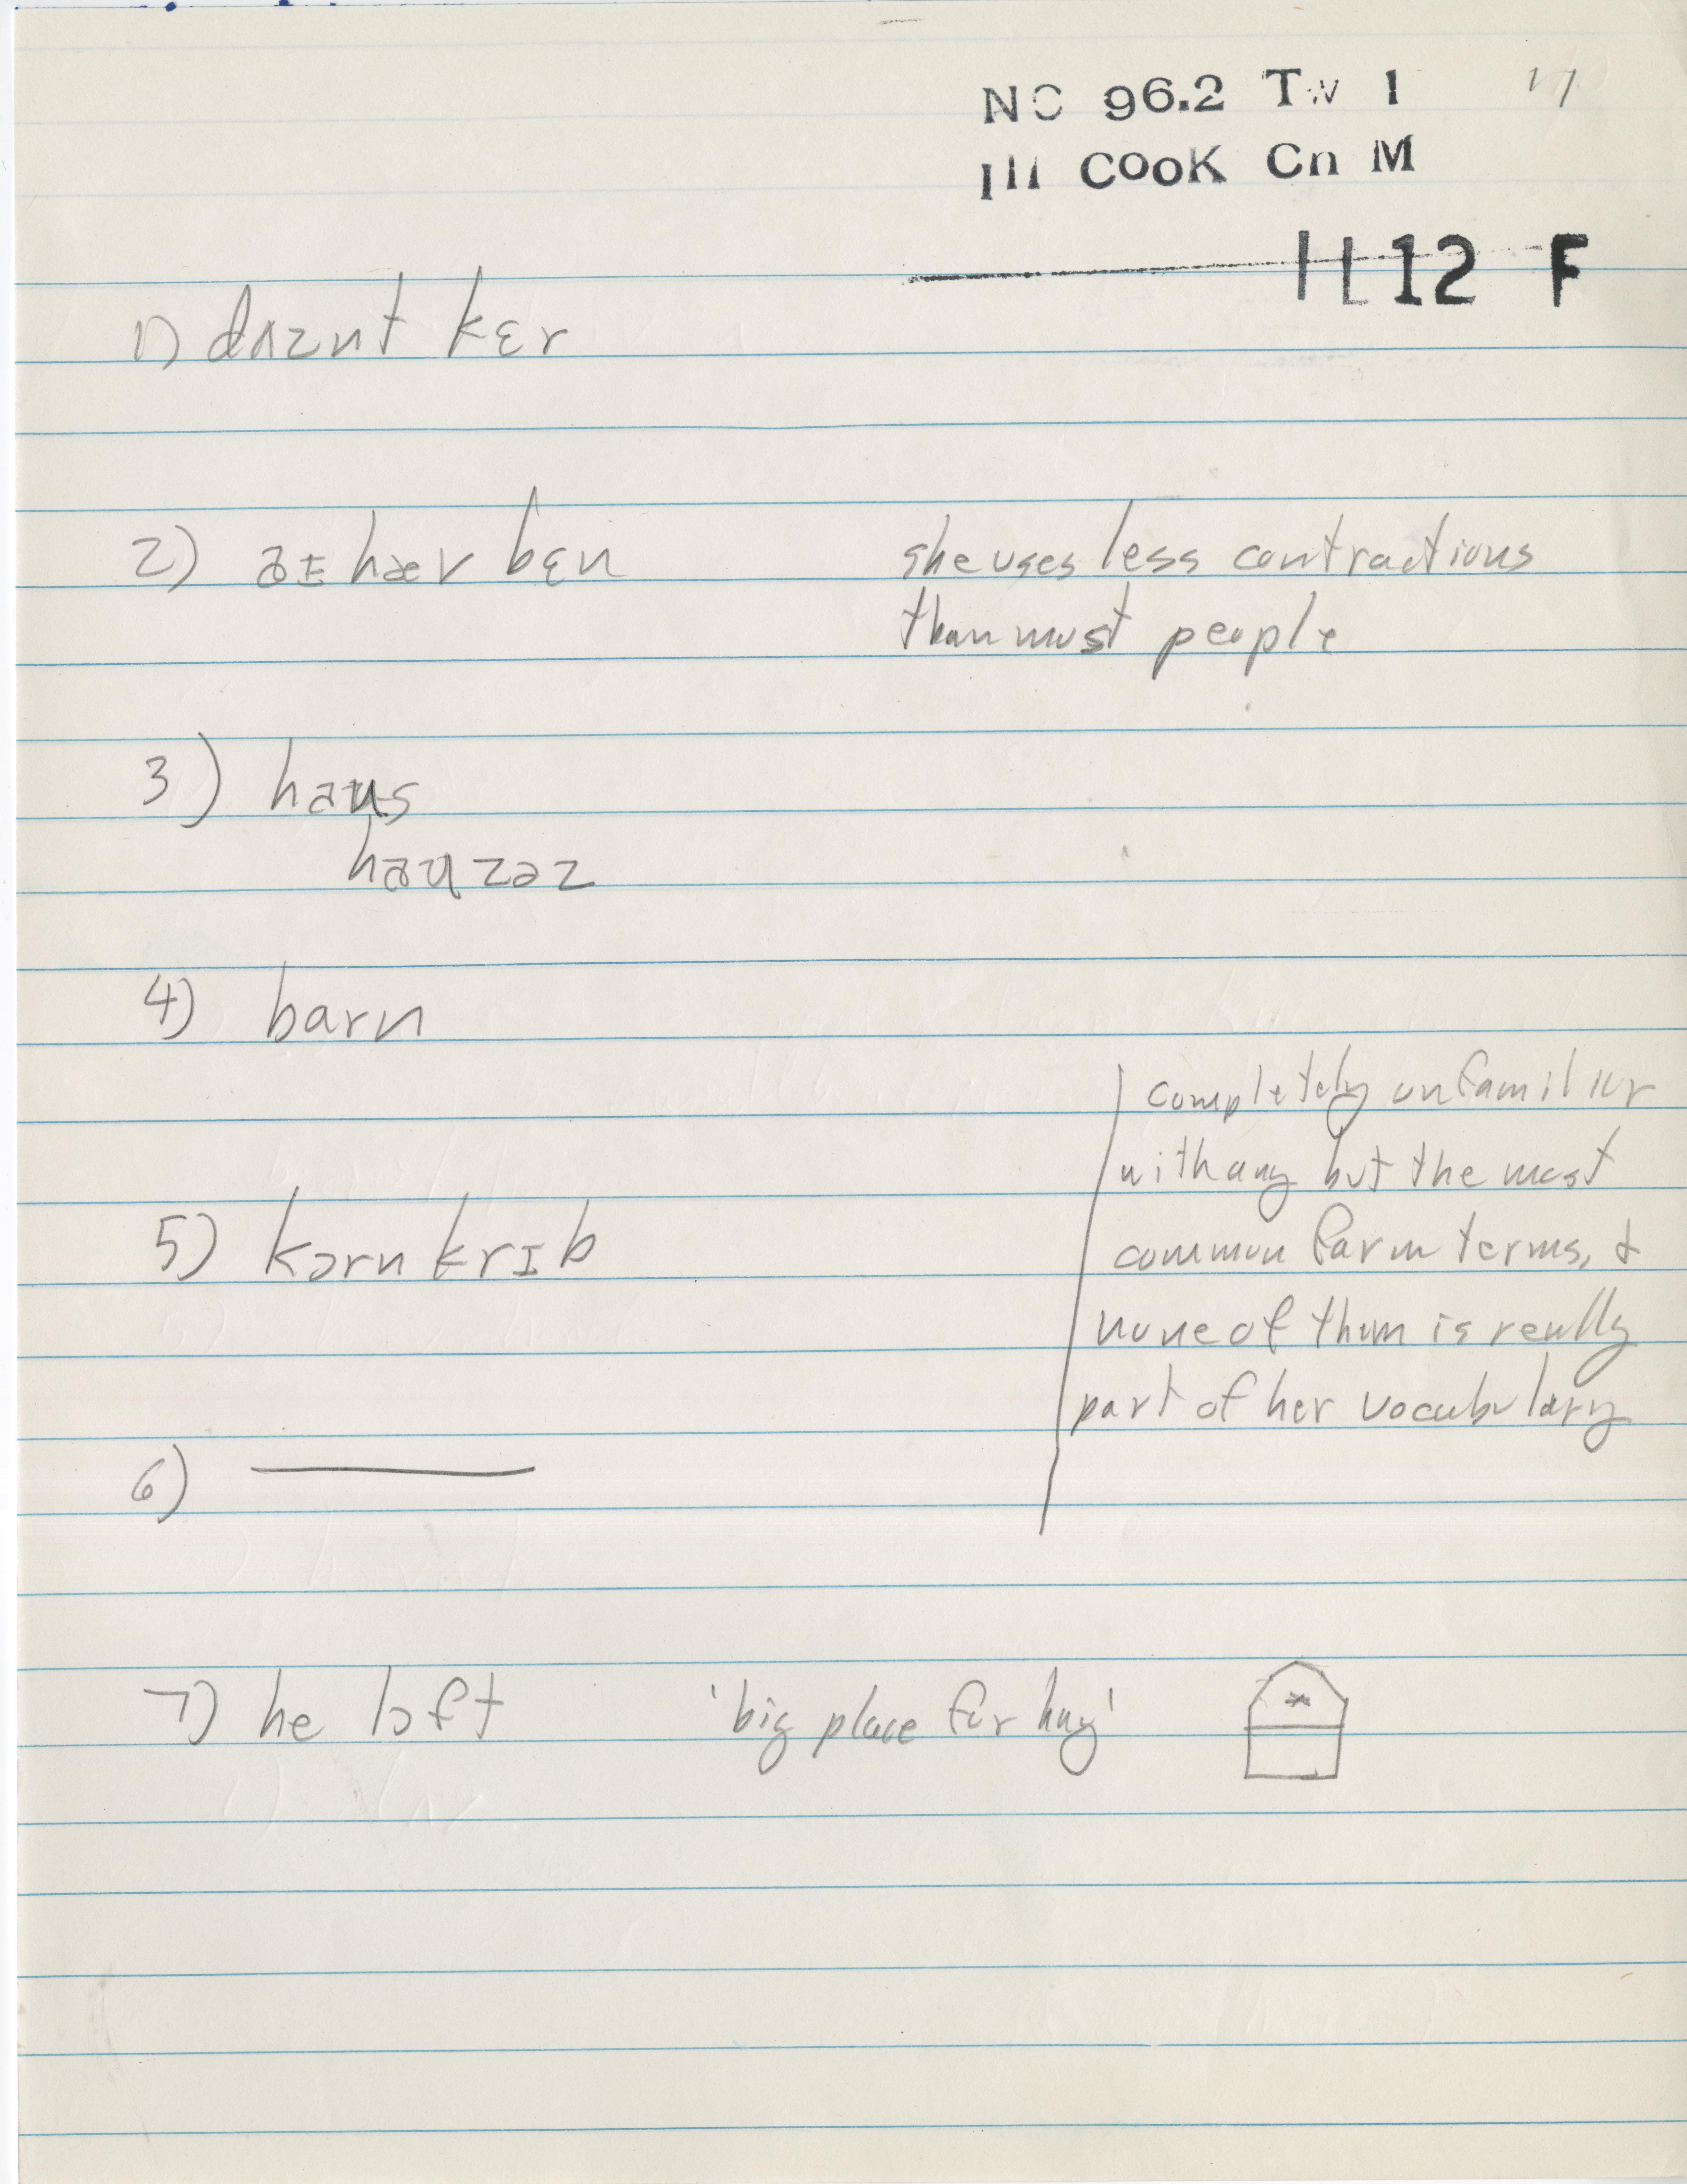 NC 96.2 Tw 1
Ill COOK Cn M
1L12 F
1) dʌznt kɛr
2) aɪ hæv bɛn she uses less contractions
than most people
3) haus
hauzəz
4) barn
completely unfamiliar
with any but the most
5) kɔrn krɪb common farm terms, &
none of them is really
part of her vocabulary
6)
7) he lɔft 'big place for hay'